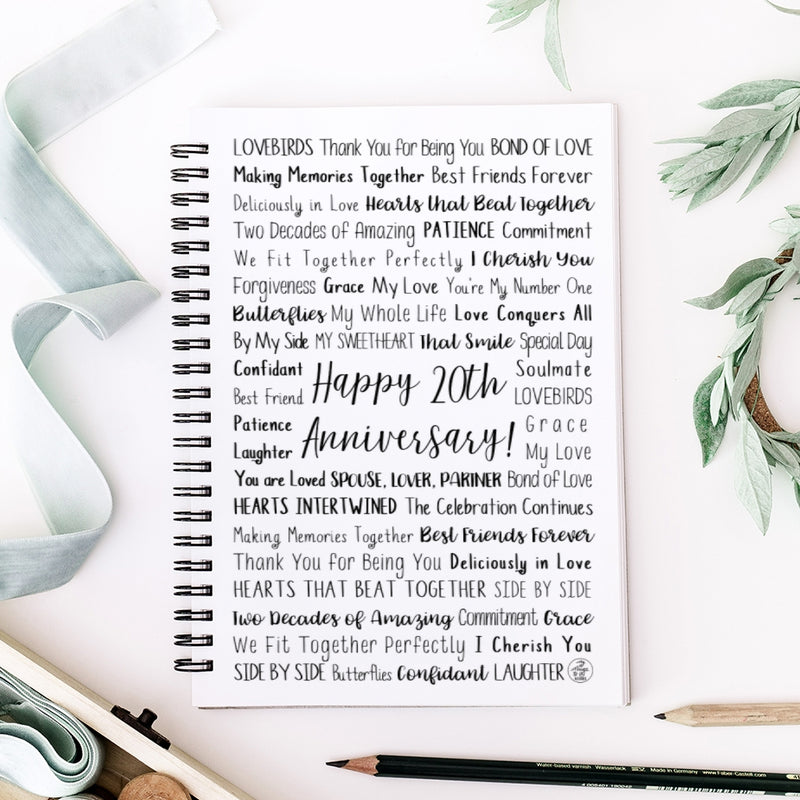 LOVEBIRDS Thank You for Being You BOND OF LOVE
Making Memories Together Best Friends Forever
Deliciously in Love Hearts that Beat Together
Two Decades of Amazing PATIENCE Commitment
We Fit Together Perfectly I Cherish You
Forgiveness Grace My Love You're My Number One
Butterflies My Whole Life Love Conquers All
By My Side MY SWEETHEART That Smile Special Day
Confidant Soulmate
Best Friend Happy 20th LOVEBIRDS
Patience Grace
Laughter Anniversary! My Love
You are Loved SPOUSE, LOVER, PARTNER Bond of Love
HEARTS INTERTWINED The Celebration Continues
Making Memories Together Best Friends Forever
Thank You for Being You Deliciously in Love
HEARTS THAT BEAT TOGETHER SIDE BY SIDE
Two Decades of Amazing Commitment Grace
We Fit Together Perfectly I Cherish You
SIDE BY SIDE Butterflies Confidant LAUGHTER
Water-based varnish Wasserlack Made in Germany www.Faber-Castell.com